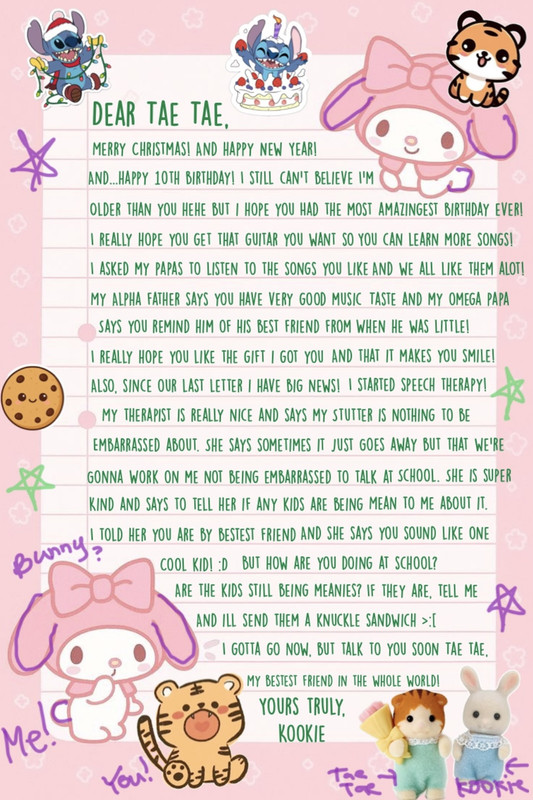 DEAR TAE TAE,
MERRY CHRISTMAS! AND HAPPY NEW YEAR!
AND...HAPPY 10TH BIRTHDAY! I STILL CAN'T BELIEVE I'M
OLDER THAN YOU HEHE BUT I HOPE YOU HAD THE MOST AMAZINGEST BIRTHDAY EVER!
I REALLY HOPE YOU GET THAT GUITAR YOU WANT SO YOU CAN LEARN MORE SONGS!
I ASKED MY PAPAS TO LISTEN TO THE SONGS YOU LIKE AND WE ALL LIKE THEM ALOT!
MY ALPHA FATHER SAYS YOU HAVE VERY GOOD MUSIC TASTE AND MY OMEGA PAPA
SAYS YOU REMIND HIM OF HIS BEST FRIEND FROM WHEN HE WAS LITTLE!
I REALLY HOPE YOU LIKE THE GIFT I GOT YOU AND THAT IT MAKES YOU SMILE!
ALSO, SINCE OUR LAST LETTER I HAVE BIG NEWS! I STARTED SPEECH THERAPY!
MY THERAPIST IS REALLY NICE AND SAYS MY STUTTER IS NOTHING TO BE
EMBARRASSED ABOUT. SHE SAYS SOMETIMES IT JUST GOES AWAY BUT THAT WE'RE
GONNA WORK ON ME NOT BEING EMBARRASSED TO TALK AT SCHOOL. SHE IS SUPER
KIND AND SAYS TO TELL HER IF ANY KIDS ARE BEING MEAN TO ME ABOUT IT.
I TOLD HER YOU ARE BY BESTEST FRIEND AND SHE SAYS YOU SOUND LIKE ONE
COOL KID! :D BUT HOW ARE YOU DOING AT SCHOOL?
ARE THE KIDS STILL BEING MEANIES? IF THEY ARE, TELL ME
AND ILL SEND THEM A KNUCKLE SANDWICH >:[
I GOTTA GO NOW, BUT TALK TO YOU SOON TAE TAE,
MY BESTEST FRIEND IN THE WHOLE WORLD!
YOURS TRULY,
KOOKIE
Bunny?
Me!
You!
Tae
Tae
Kookie